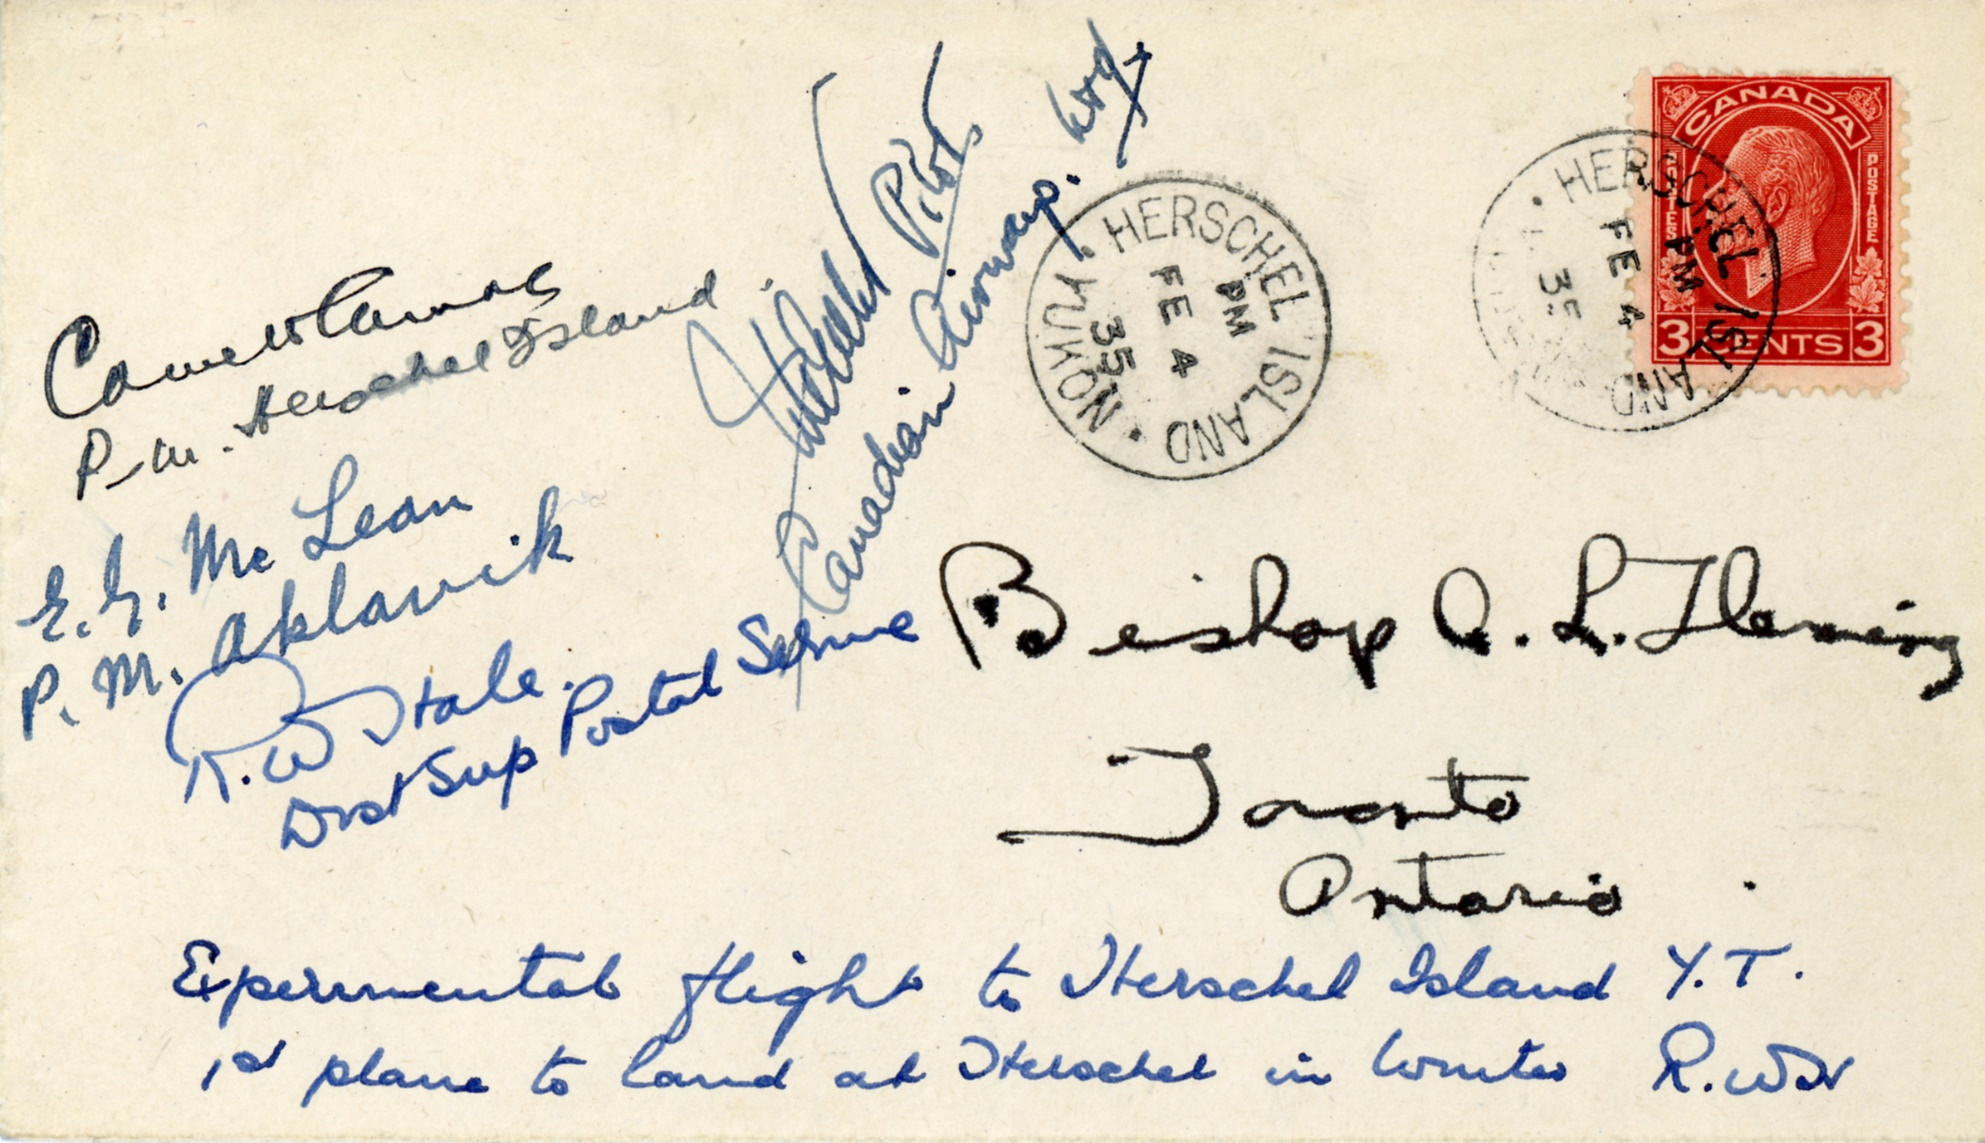 P.M. Herschel Island.
E. G. McLean
P. M. Aklavik
R. W Hale.
Dist Sup Postal Service
Pilot
Canadian Airways.
HERSCHEL ISLAND
YUKON
PM
FE 4
35
HERSCHEL ISLAND
PM
FE 4
35
CANADA
POSTES
POSTAGE
3 CENTS 3
Bishop A. L. Fleming
Toronto
Ontario.
Experimental flight to Herschel Island Y.T.
1st plane to land at Herschel in Winter R.W.H